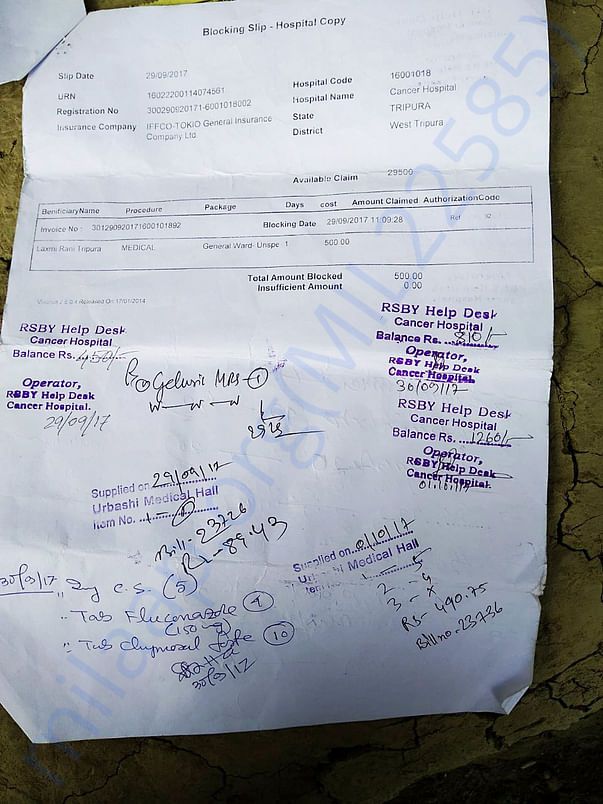 Blocking Slip - Hospital Copy
Slip Date 29/09/2017
URN 16022200114074561
Registration No 300290920171-6001018002
Insurance Company IFFCO-TOKIO General Insurance Company Ltd
Hospital Code 16001018
Hospital Name Cancer Hospital
State TRIPURA
District West Tripura
Available Claim 29500
BenificiaryName Procedure Package Days cost Amount Claimed AuthorizationCode
Invoice No : 301290920171600101892 Blocking Date 29/09/2017 11:09:28 Ref
Laxmi Rani Tripura MEDICAL General Ward- Unspe 1 500.00
Total Amount Blocked 500.00
Insufficient Amount 0.00
RSBY Help Desk
Cancer Hospital
Balance Rs. 450/-
Operator,
RSBY Help Desk
Cancer Hospital.
29/09/17
RSBY Help Desk
Cancer Hospital
Balance Rs. 810/-
Operator,
RSBY Help Desk
Cancer Hospital.
30/09/17
RSBY Help Desk
Cancer Hospital
Balance Rs. 1260/-
Operator,
RSBY Help Desk
Cancer Hospital.
01/10/17
Supplied on 29/09/17
Urbashi Medical Hall
Item No.
Bill - 23726
Rs - 89.43
Supplied on 01/10/17
Urbashi Medical Hall
Rs- 490.75
Bill no - 23736
30/9/17
Tab Fluconazole
(150 mg)
Tab
30/9/17
milaap.org(MIL122585)